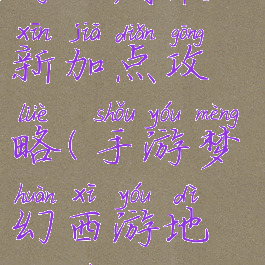 xīn jiā diǎn gōng
新加点攻
lüè shǒu yóu mèng
略(手游梦
huàn xī yóu dì
幻西游地